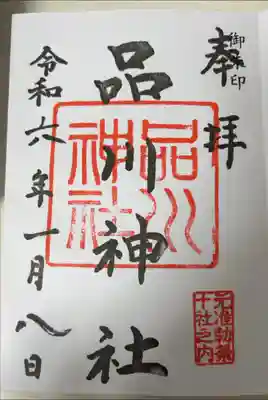 奉拝
御朱印
品川神社
令和六年一月八日
品川
神社
元准勅祭
十社之内